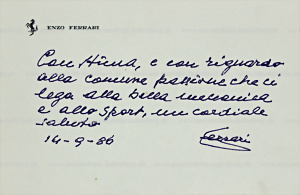 ENZO FERRARI
Con stima, e con riguardo
alla comune passione che ci
lega alla bella meccanica
e allo sport, un cordiale
saluto
14-9-86
Ferrari